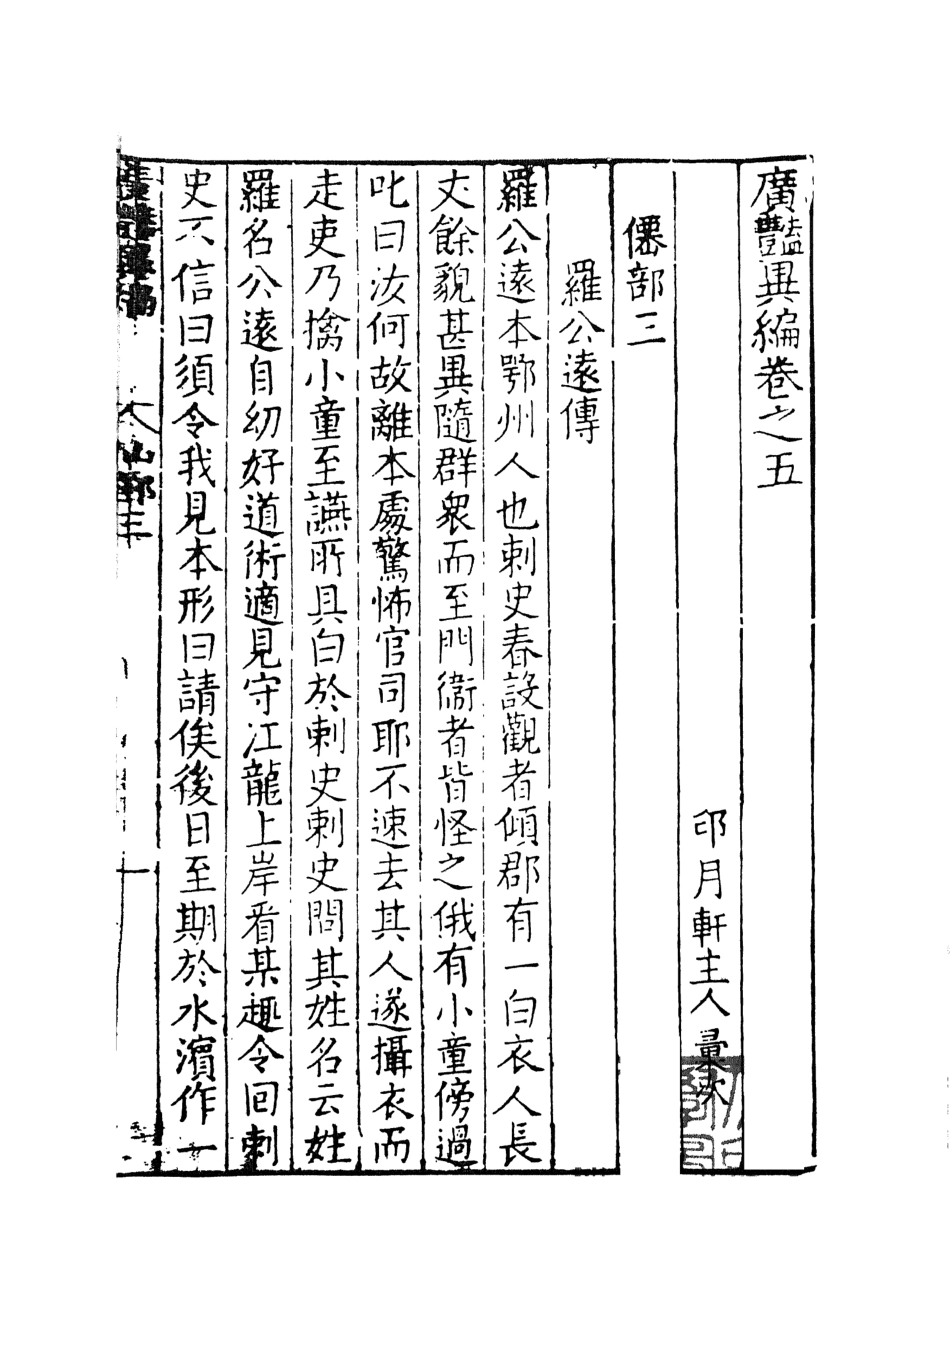 廣豔異編卷之五
印月軒主人彙次
僊部三
羅公遠傳
羅公遠本鄂州人也刺史春設觀者傾郡有一白衣人長
丈餘貌甚異隨群衆而至門衞者皆怪之俄有小童傍過
叱曰汝何故離本處驚怖官司耶不速去其人遂攝衣而
走吏乃擒小童至讌所具白於刺史刺史問其姓名云姓
羅名公遠自幼好道術適見守江龍上岸看某趣令回刺
史不信曰須令我見本形曰請俟後日至期於水濱作一